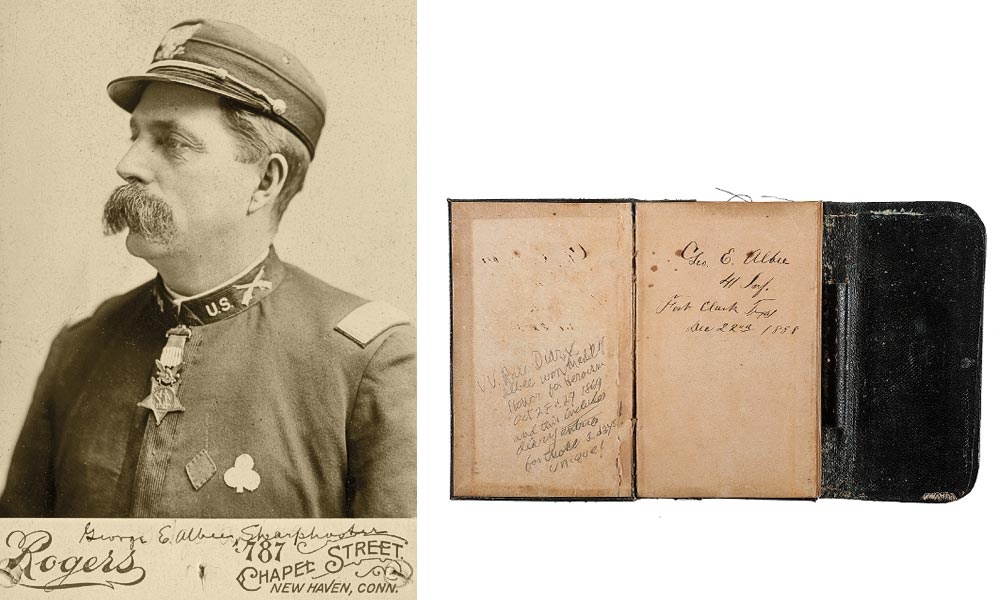 U.S.
George E. Albee, Sharpshooter
Rogers
787
CHAPEL STREET.
NEW HAVEN, CONN.
V.V. Rare Diary
Albee won Medal of
Honor for Heroism
Oct 28 & 29 1869
and this includes
diary entries
for those 2 days
unique!
Geo. E. Albee
41 Inf.
Fort Clark Texas
Dec 22nd 1868